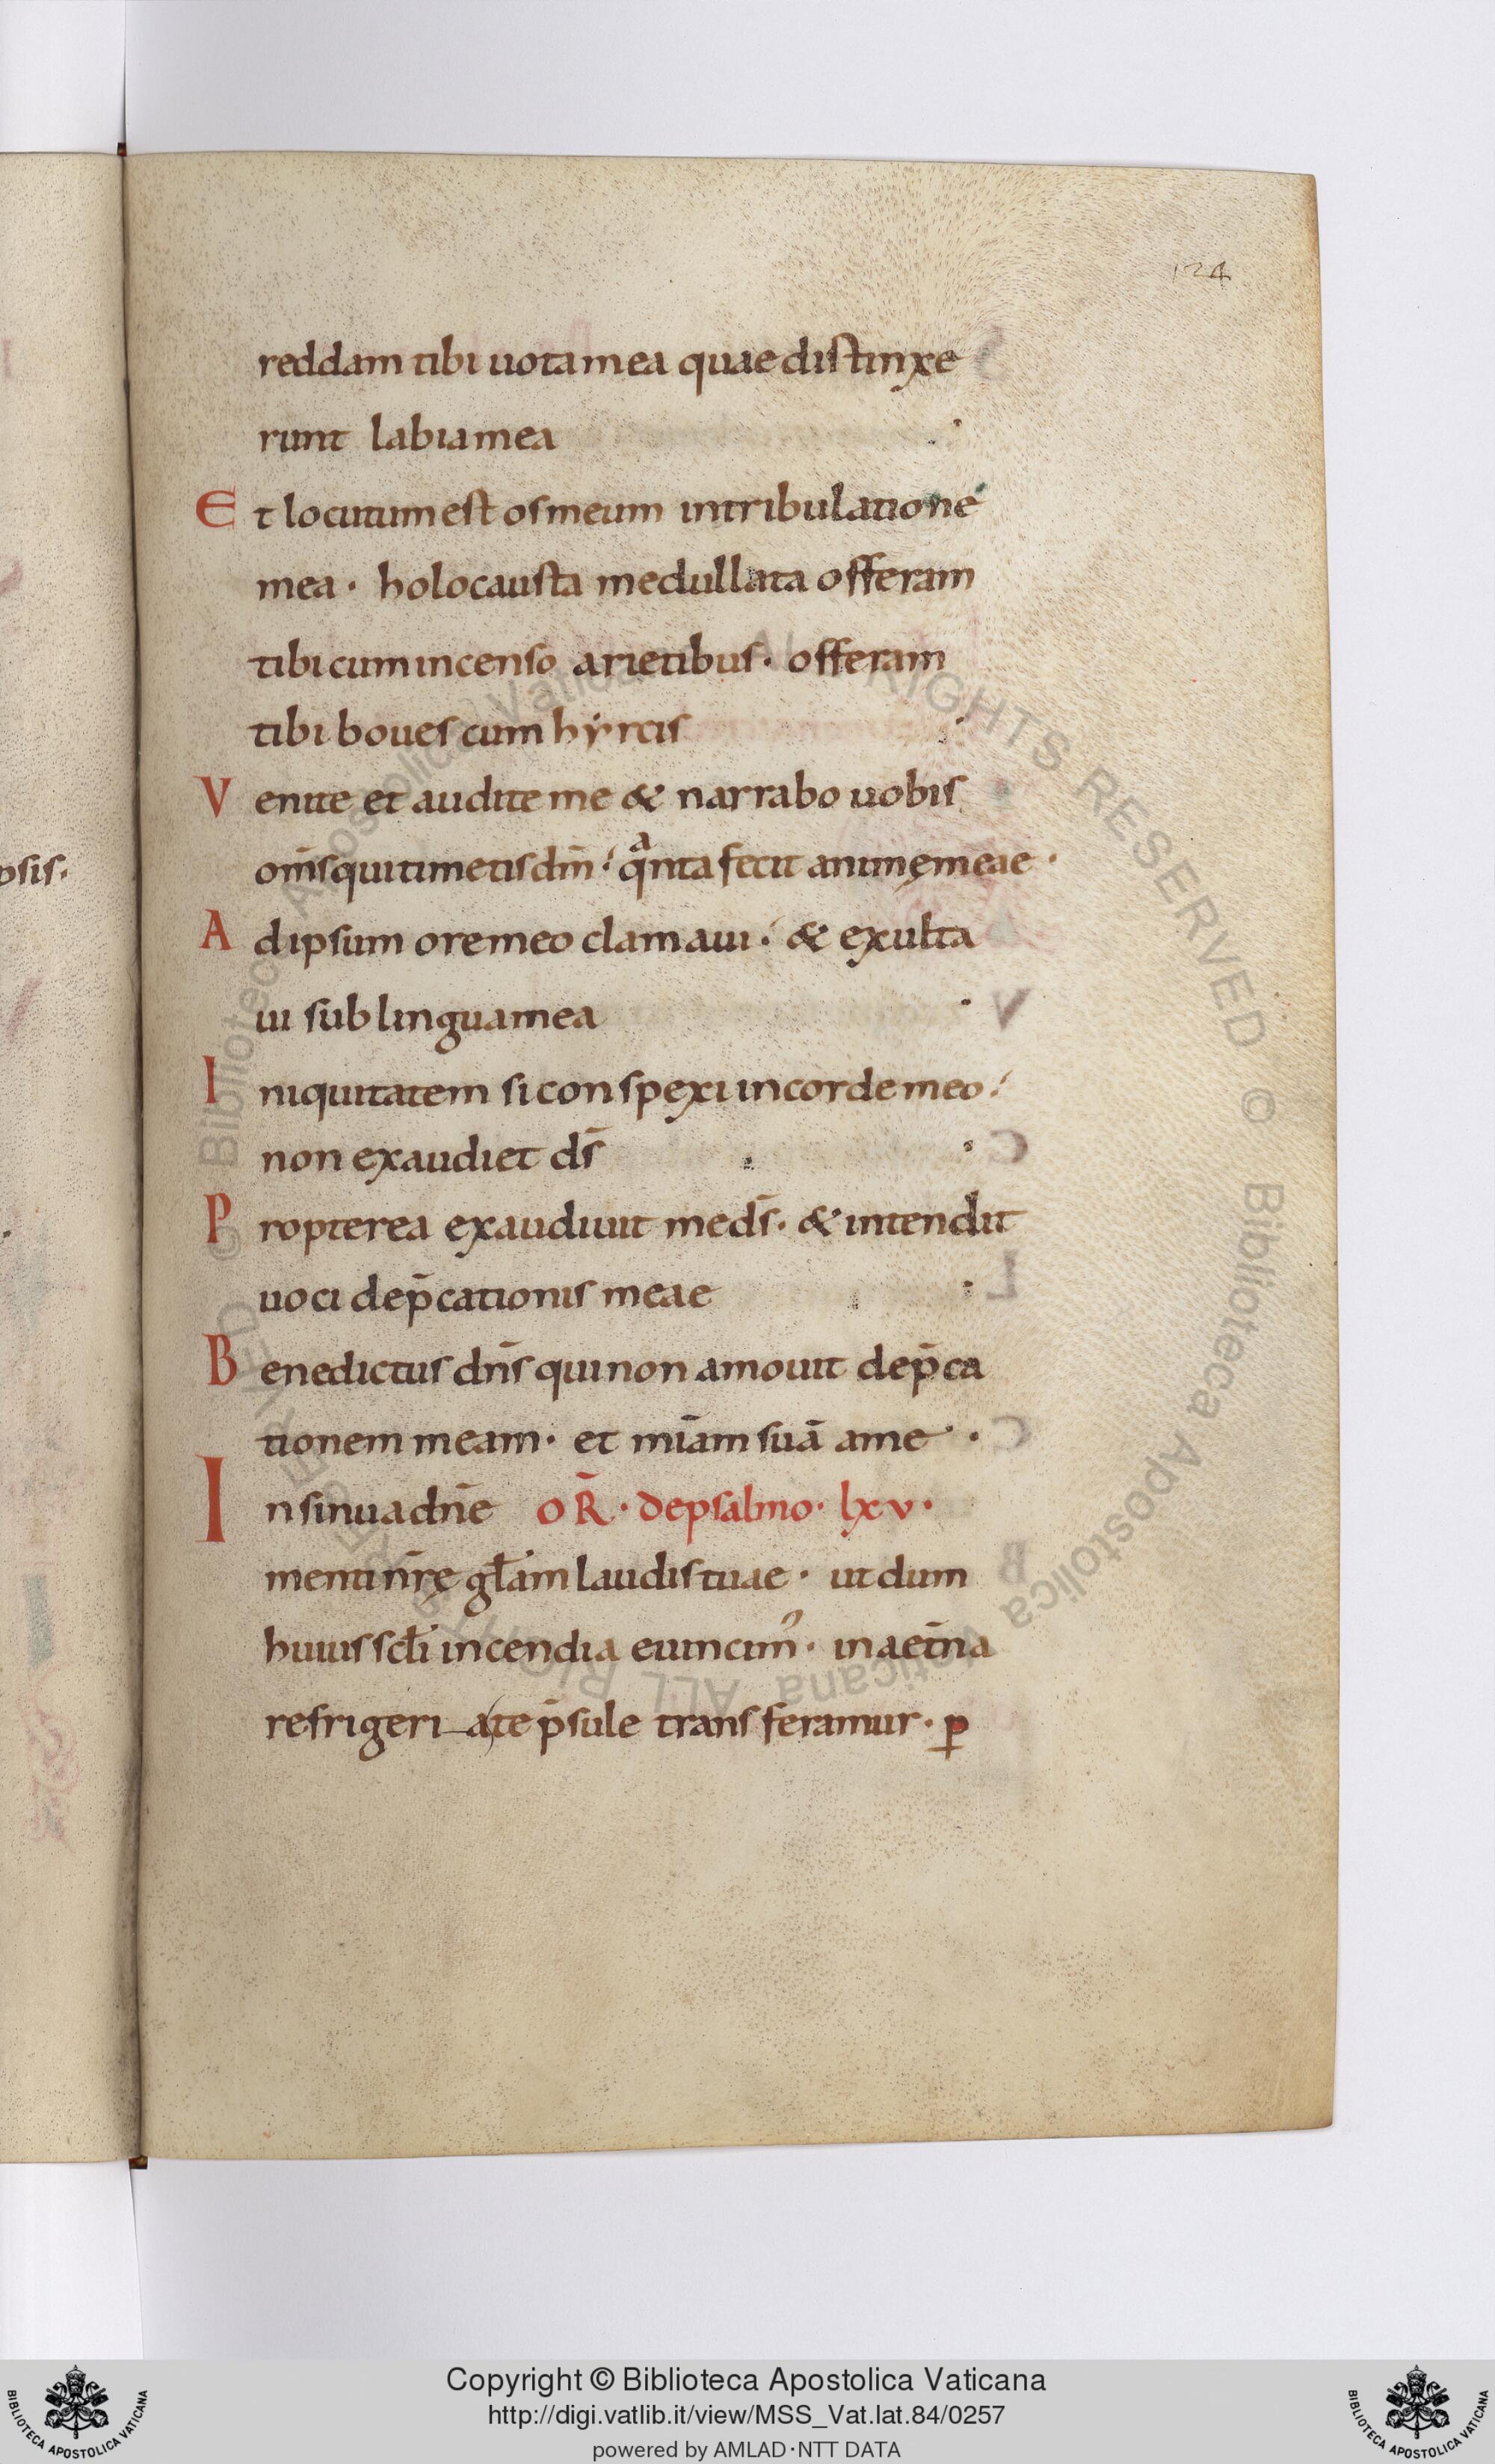 124
reddam tibi uota mea quae distinxe
runt labia mea ·
Et locutum est os meum in tribulatione
mea · holocausta medullata offeram
tibi cum incenso arietibus · offeram
tibi boues cum hẏrcis ·
Venite et audite me & narrabo uobis
om̄s qui timetis dm̄ · qͣnta fecit animę meae ·
Ad ipsum ore meo clamaui · & exulta
ui sub lingua mea ·
Iniquitatem si conspexi in corde meo ·
non exaudiet ds̄ ·
Propterea exaudiuit me ds̄ · & intendit
uoci dep̄cationis meae ·
Benedictus dn̄s qui non amouit dep̄ca
tionem meam · et mīam suā a me ·
Insinua dn̄e OR̄ · de psalmo · lxv ·
menti nr̄ę gl̄am laudis tuae · ut dum
huius sc̄li incendia euincim᾿ · in aet̄na
refrigeri a te p̄sule transferamur · p
psis ·
© Biblioteca Apostolica Vaticana ALL RIGHTS RESERVED © Biblioteca Apostolica Vaticana ALL RIGHTS RESERVED
Copyright © Biblioteca Apostolica Vaticana
http://digi.vatlib.it/view/MSS_Vat.lat.84/0257
powered by AMLAD·NTT DATA
BIBLIOTECA APOSTOLICA VATICANA
BIBLIOTECA APOSTOLICA VATICANA